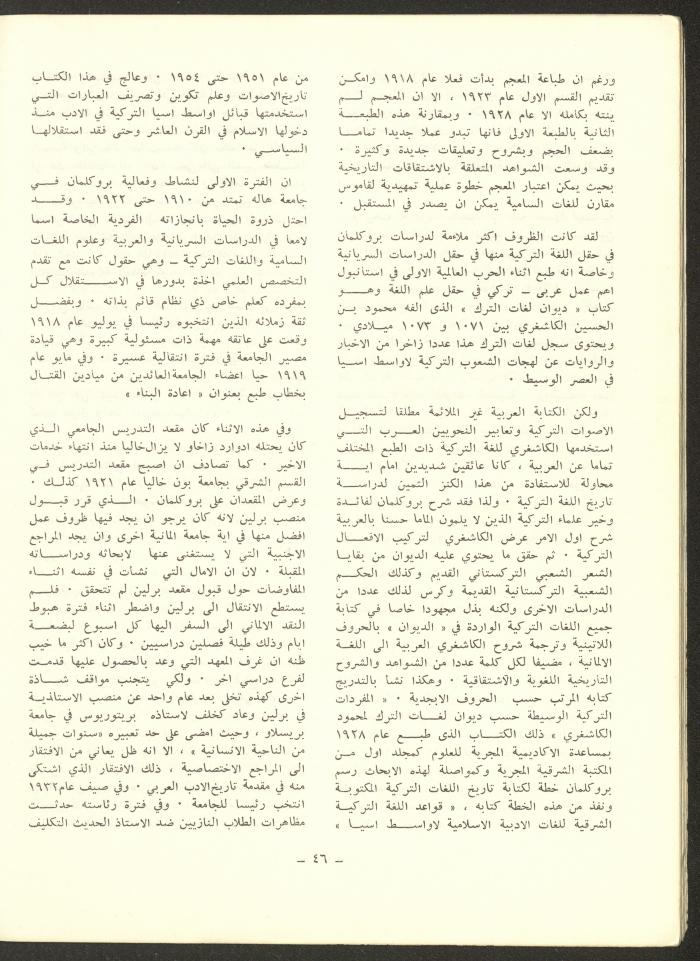 ورغم ان طباعة المعجم بدأت فعلا عام ١٩١٨ وامكن
تقديم القسم الاول عام ١٩٢٣ ، الا ان المعجم لم
ينته بكامله الا عام ١٩٢٨ · وبمقارنة هذه الطبعة
الثانية بالطبعة الاولى فانها تبدو عملا جديدا تماما
بضعف الحجم وبشروح وتعليقات جديدة وكثيرة ·
وقد وسعت الشواهد المتعلقة بالاشتقاقات التاريخية
بحيث يمكن اعتبار المعجم خطوة عملية تمهيدية لقاموس
مقارن للغات السامية يمكن ان يصدر في المستقبل ·
لقد كانت الظروف اكثر ملاءمة لدراسات بروكلمان
في حقل اللغة التركية منها في حقل الدراسات السريانية
وخاصة انه طبع اثناء الحرب العالمية الاولى في استانبول
اهم عمل عربى ــ تركي في حقل علم اللغة وهو
كتاب « ديوان لغات الترك » الذى الفه محمود بن
الحسين الكاشغري بين ١٠٧١ و ١٠٧٣ ميلادي ·
ويحتوى سجل لغات الترك هذا عددا زاخرا من الاخبار
والروايات عن لهجات الشعوب التركية لاواسط اسيا
في العصر الوسيط ·
ولكن الكتابة العربية غير الملائمة مطلقا لتسجيل
الاصوات التركية وتعابير النحويين العرب التي
استخدمها الكاشغري للغة التركية ذات الطبع المختلف
تماما عن العربية ، كانا عائقين شديدين امام اية
محاولة للاستفادة من هذا الكنز الثمين لدراسة
تاريخ اللغة التركية · ولذا فقد شرح بروكلمان لفائدة
وخير علماء التركية الذين لا يلمون الماما حسنا بالعربية
شرح اول الامر عرض الكاشغري لتركيب الافعال
التركية · ثم حقق ما يحتوي عليه الديوان من بقايا
الشعر الشعبي التركستاني القديم وكذلك الحكم
الشعبية التركستانية القديمة وكرس لذلك عددا من
الدراسات الاخرى ولكنه بذل مجهودا خاصا في كتابة
جميع اللغات التركية الواردة في « الديوان » بالحروف
اللاتينية وترجمة شروح الكاشغري العربية الى اللغة
الالمانية ، مضيفا لكل كلمة عددا من الشواهد والشروح
التاريخية اللغوية والاشتقاقية · وهكذا نشأ بالتدريج
كتابه المرتب حسب الحروف الابجدية · « المفردات
التركية الوسيطة حسب ديوان لغات الترك لمحمود
الكاشغري » ذلك الكتاب الذى طبع عام ١٩٢٨
بمساعدة الاكاديمية المجرية للعلوم كمجلد اول من
المكتبة الشرقية المجرية وكمواصلة لهذه الابحاث رسم
بروكلمان خطة لكتابة تاريخ اللغات التركية المكتوبة
ونفذ من هذه الخطة كتابه ، « قواعد اللغة التركية
الشرقية للغات الادبية الاسلامية لاواسط اسيا »
من عام ١٩٥١ حتى ١٩٥٤ · وعالج في هذا الكتاب
تاريخ الاصوات وعلم تكوين وتصريف العبارات التي
استخدمتها قبائل اواسط اسيا التركية في الادب منذ
دخولها الاسلام في القرن العاشر وحتى فقد استقلالها
السياسي ·
ان الفترة الاولى لنشاط وفعالية بروكلمان في
جامعة هاله تمتد من ١٩١٠ حتى ١٩٢٢ · وقد
احتل ذروة الحياة بانجازاته الفردية الخاصة اسما
لامعا في الدراسات السريانية والعربية وعلوم اللغات
السامية واللغات التركية ــ وهي حقول كانت مع تقدم
التخصص العلمي اخذة بدورها في الاستقلال كل
بمفرده كعلم خاص ذي نظام قائم بذاته · وبفضل
ثقة زملائه الذين انتخبوه رئيسا في يوليو عام ١٩١٨
وقعت على عاتقه مهمة ذات مسئولية كبيرة وهي قيادة
مصير الجامعة في فترة انتقالية عسيرة · وفي مايو عام
١٩١٩ حيا اعضاء الجامعة العائدين من ميادين القتال
بخطاب طبع بعنوان « اعادة البناء »
وفي هذه الاثناء كان مقعد التدريس الجامعي الذي
كان يحتله ادوارد زاخاو لا يزال خاليا منذ انتهاء خدمات
الاخير · كما تصادف ان اصبح مقعد التدريس في
القسم الشرقي بجامعة بون خاليا عام ١٩٢١ كذلك ·
وعرض المقعدان على بروكلمان · الذي قرر قبول
منصب برلين لانه كان يرجو ان يجد فيها ظروف عمل
افضل منها في اية جامعة المانية اخرى وان يجد المراجع
الاجنبية التي لا يستغنى عنها لابحاثه ودراساته
المقبلة · لان ان الامال التي نشات في نفسه اثناء
المفاوضات حول قبول مقعد برلين لم تتحقق · فلم
يستطع الانتقال الى برلين واضطر اثناء فترة هبوط
النقد الالماني الى السفر اليها كل اسبوع لبضعة
ايام وذلك طيلة فصلين دراسيين · وكان اكثر ما خيب
ظنه ان غرف المعهد التي وعد بالحصول عليها قدمت
لفرع دراسي اخر · ولكي يتجنب مواقف شاذة
اخرى كهذه تخلى بعد عام واحد عن منصب الاستاذية
في برلين وعاد كخلف لاستاذه بريتوريوس في جامعة
بريسلاو ، وحيث امضى على حد تعبيره «سنوات جميلة
من الناحية الانسانية » ، الا انه ظل يعاني من الافتقار
الى المراجع الاختصاصية ، ذلك الافتقار الذي اشتكى
منه في مقدمة تاريخ الادب العربي · وفي صيف عام ١٩٣٢
انتخب رئيسا للجامعة · وفي فترة رئاسته حدثت
مظاهرات الطلاب النازيين ضد الاستاذ الحديث التكليف
ــ ٤٦ ــ